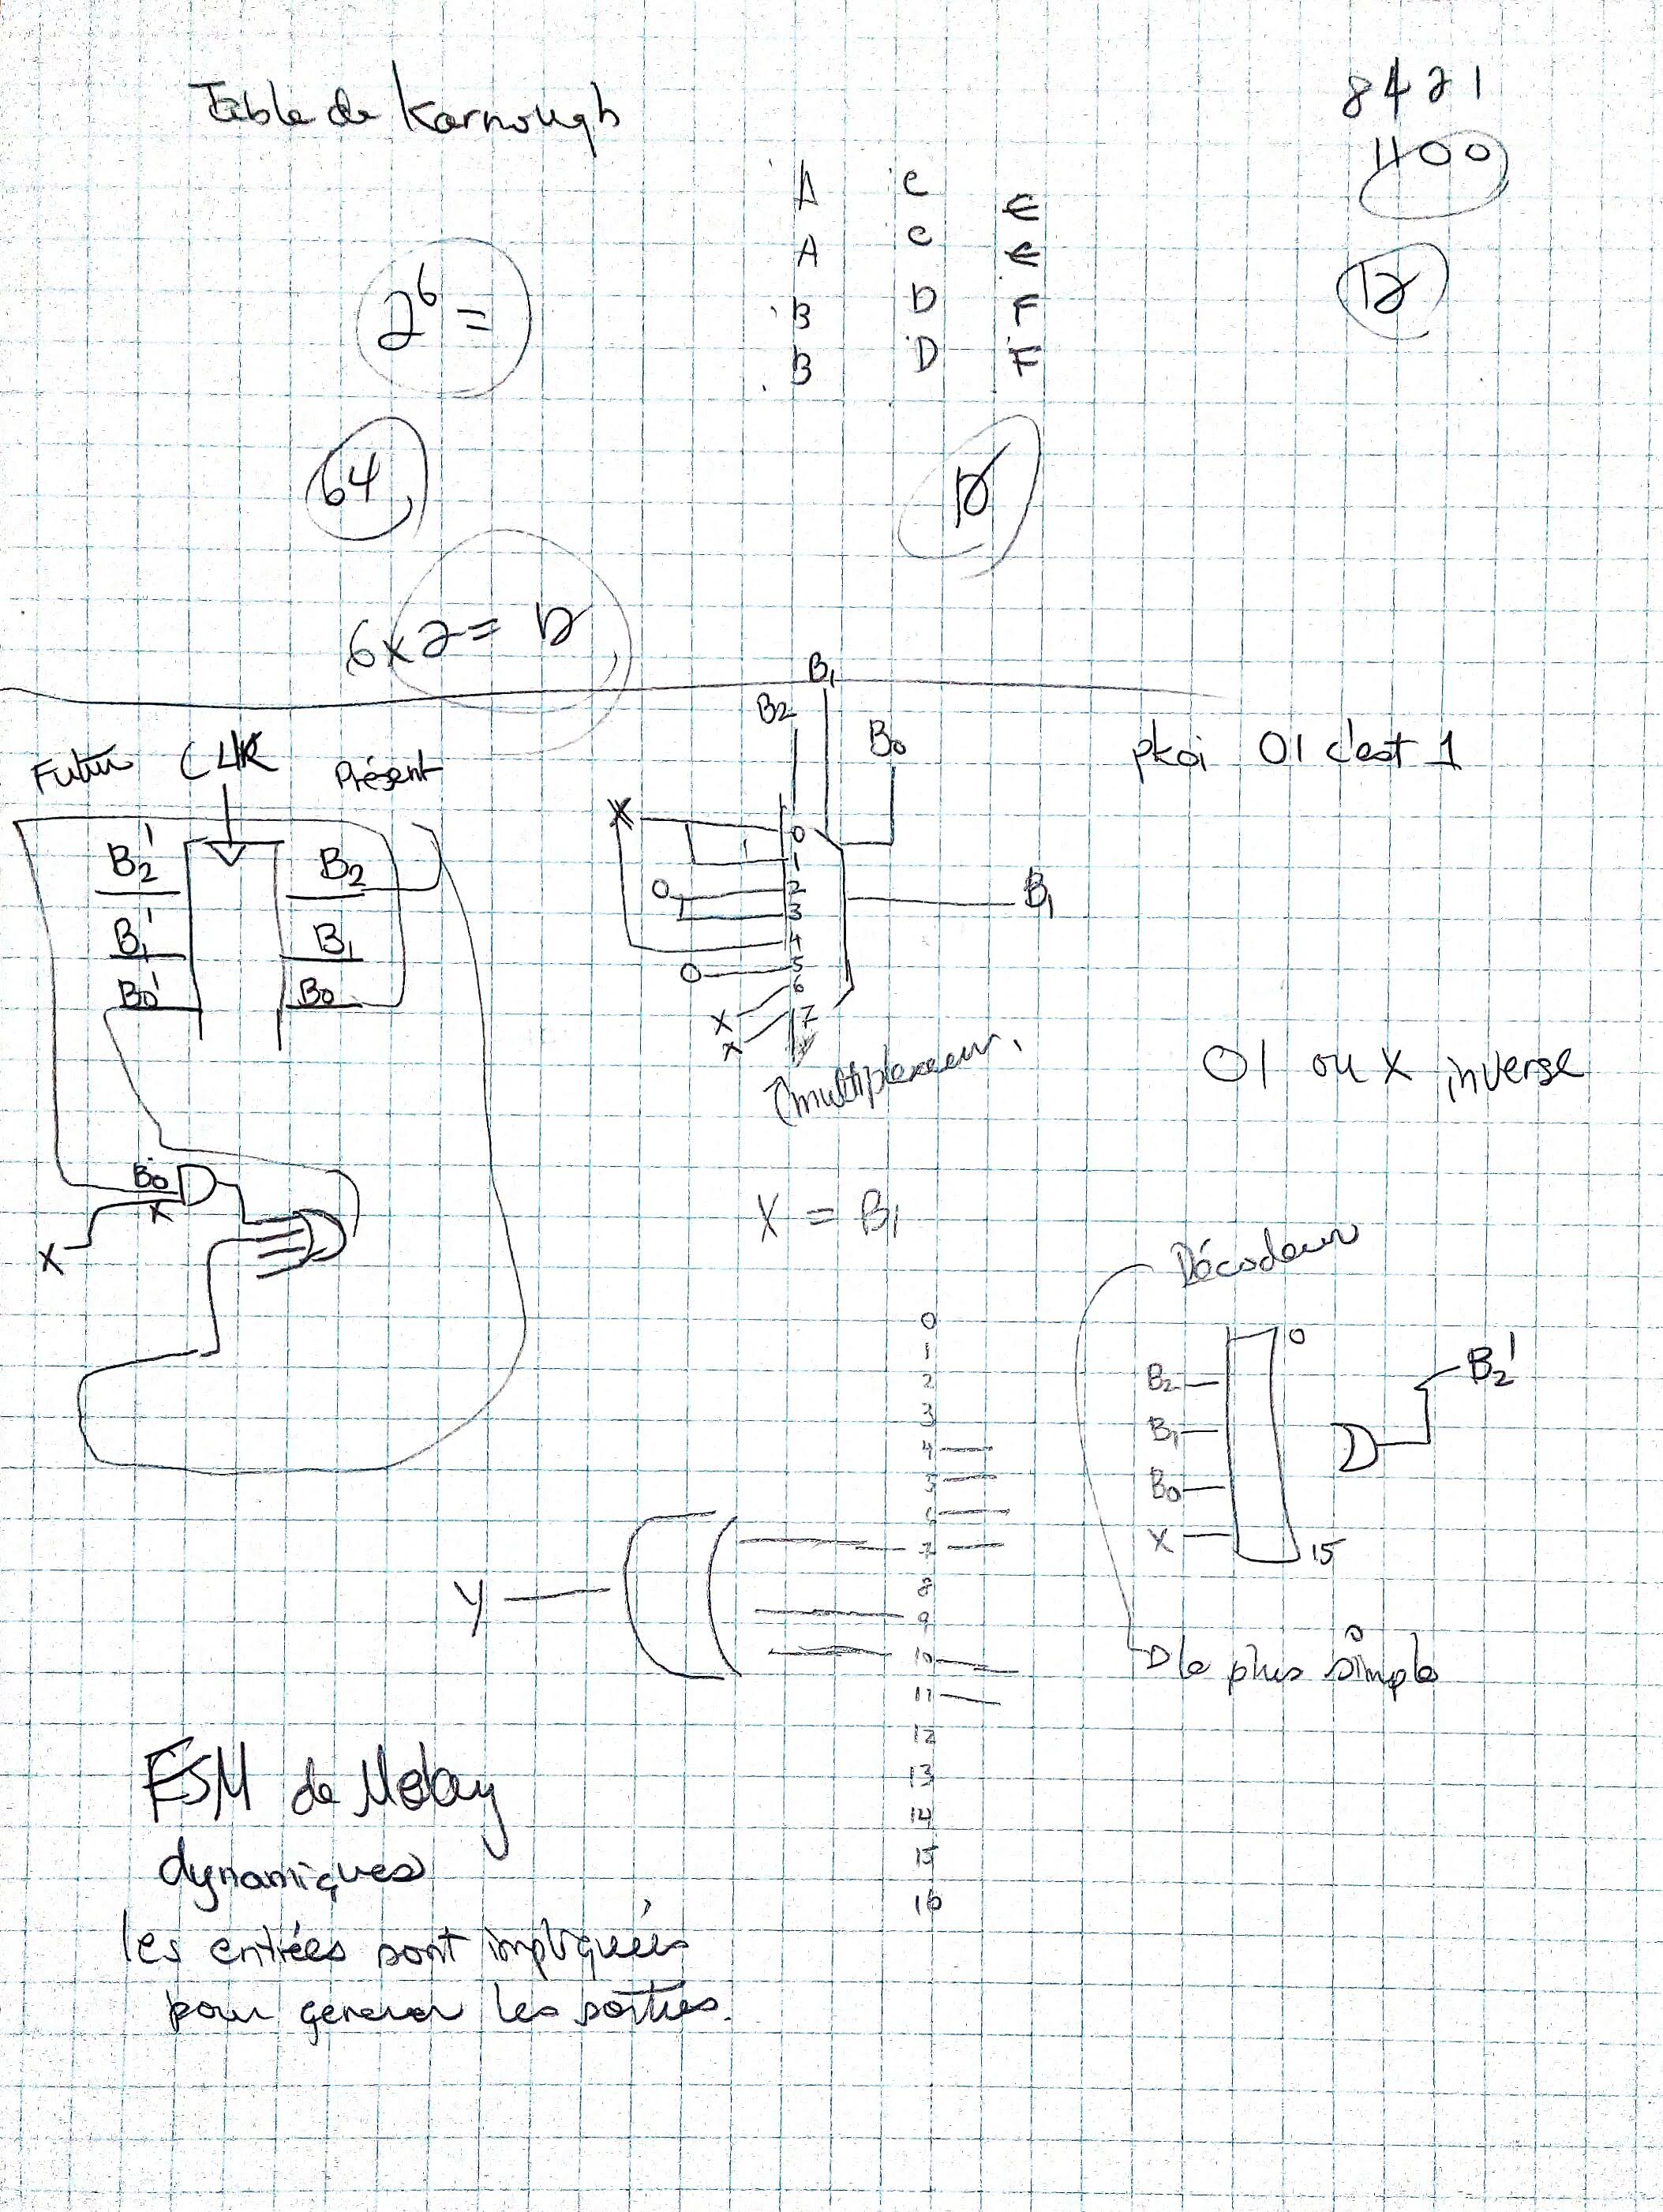 Table de Karnough
8421
1100
A C E
A C E
B D F
B D F
12
2^6 =
64
12
6x2 = 12
Futur CLK Présent
B2' B2
B1' B1
B0' B0
B0
X
X
B2 B1 B0
X
0
1
0 2
3
4
0 5
X 6
X 7
B1
multiplexeur
pkoi 01 c'est 1
01 ou X inverse
X = B1
Décodeur
B2 0
B1
B0
X 15
B2'
le plus simple
Y
0
1
2
3
4
5
6
7
8
9
10
11
12
13
14
15
16
FSM de Melay
dynamiques
les entrées sont impliquées
pour generer les sorties.